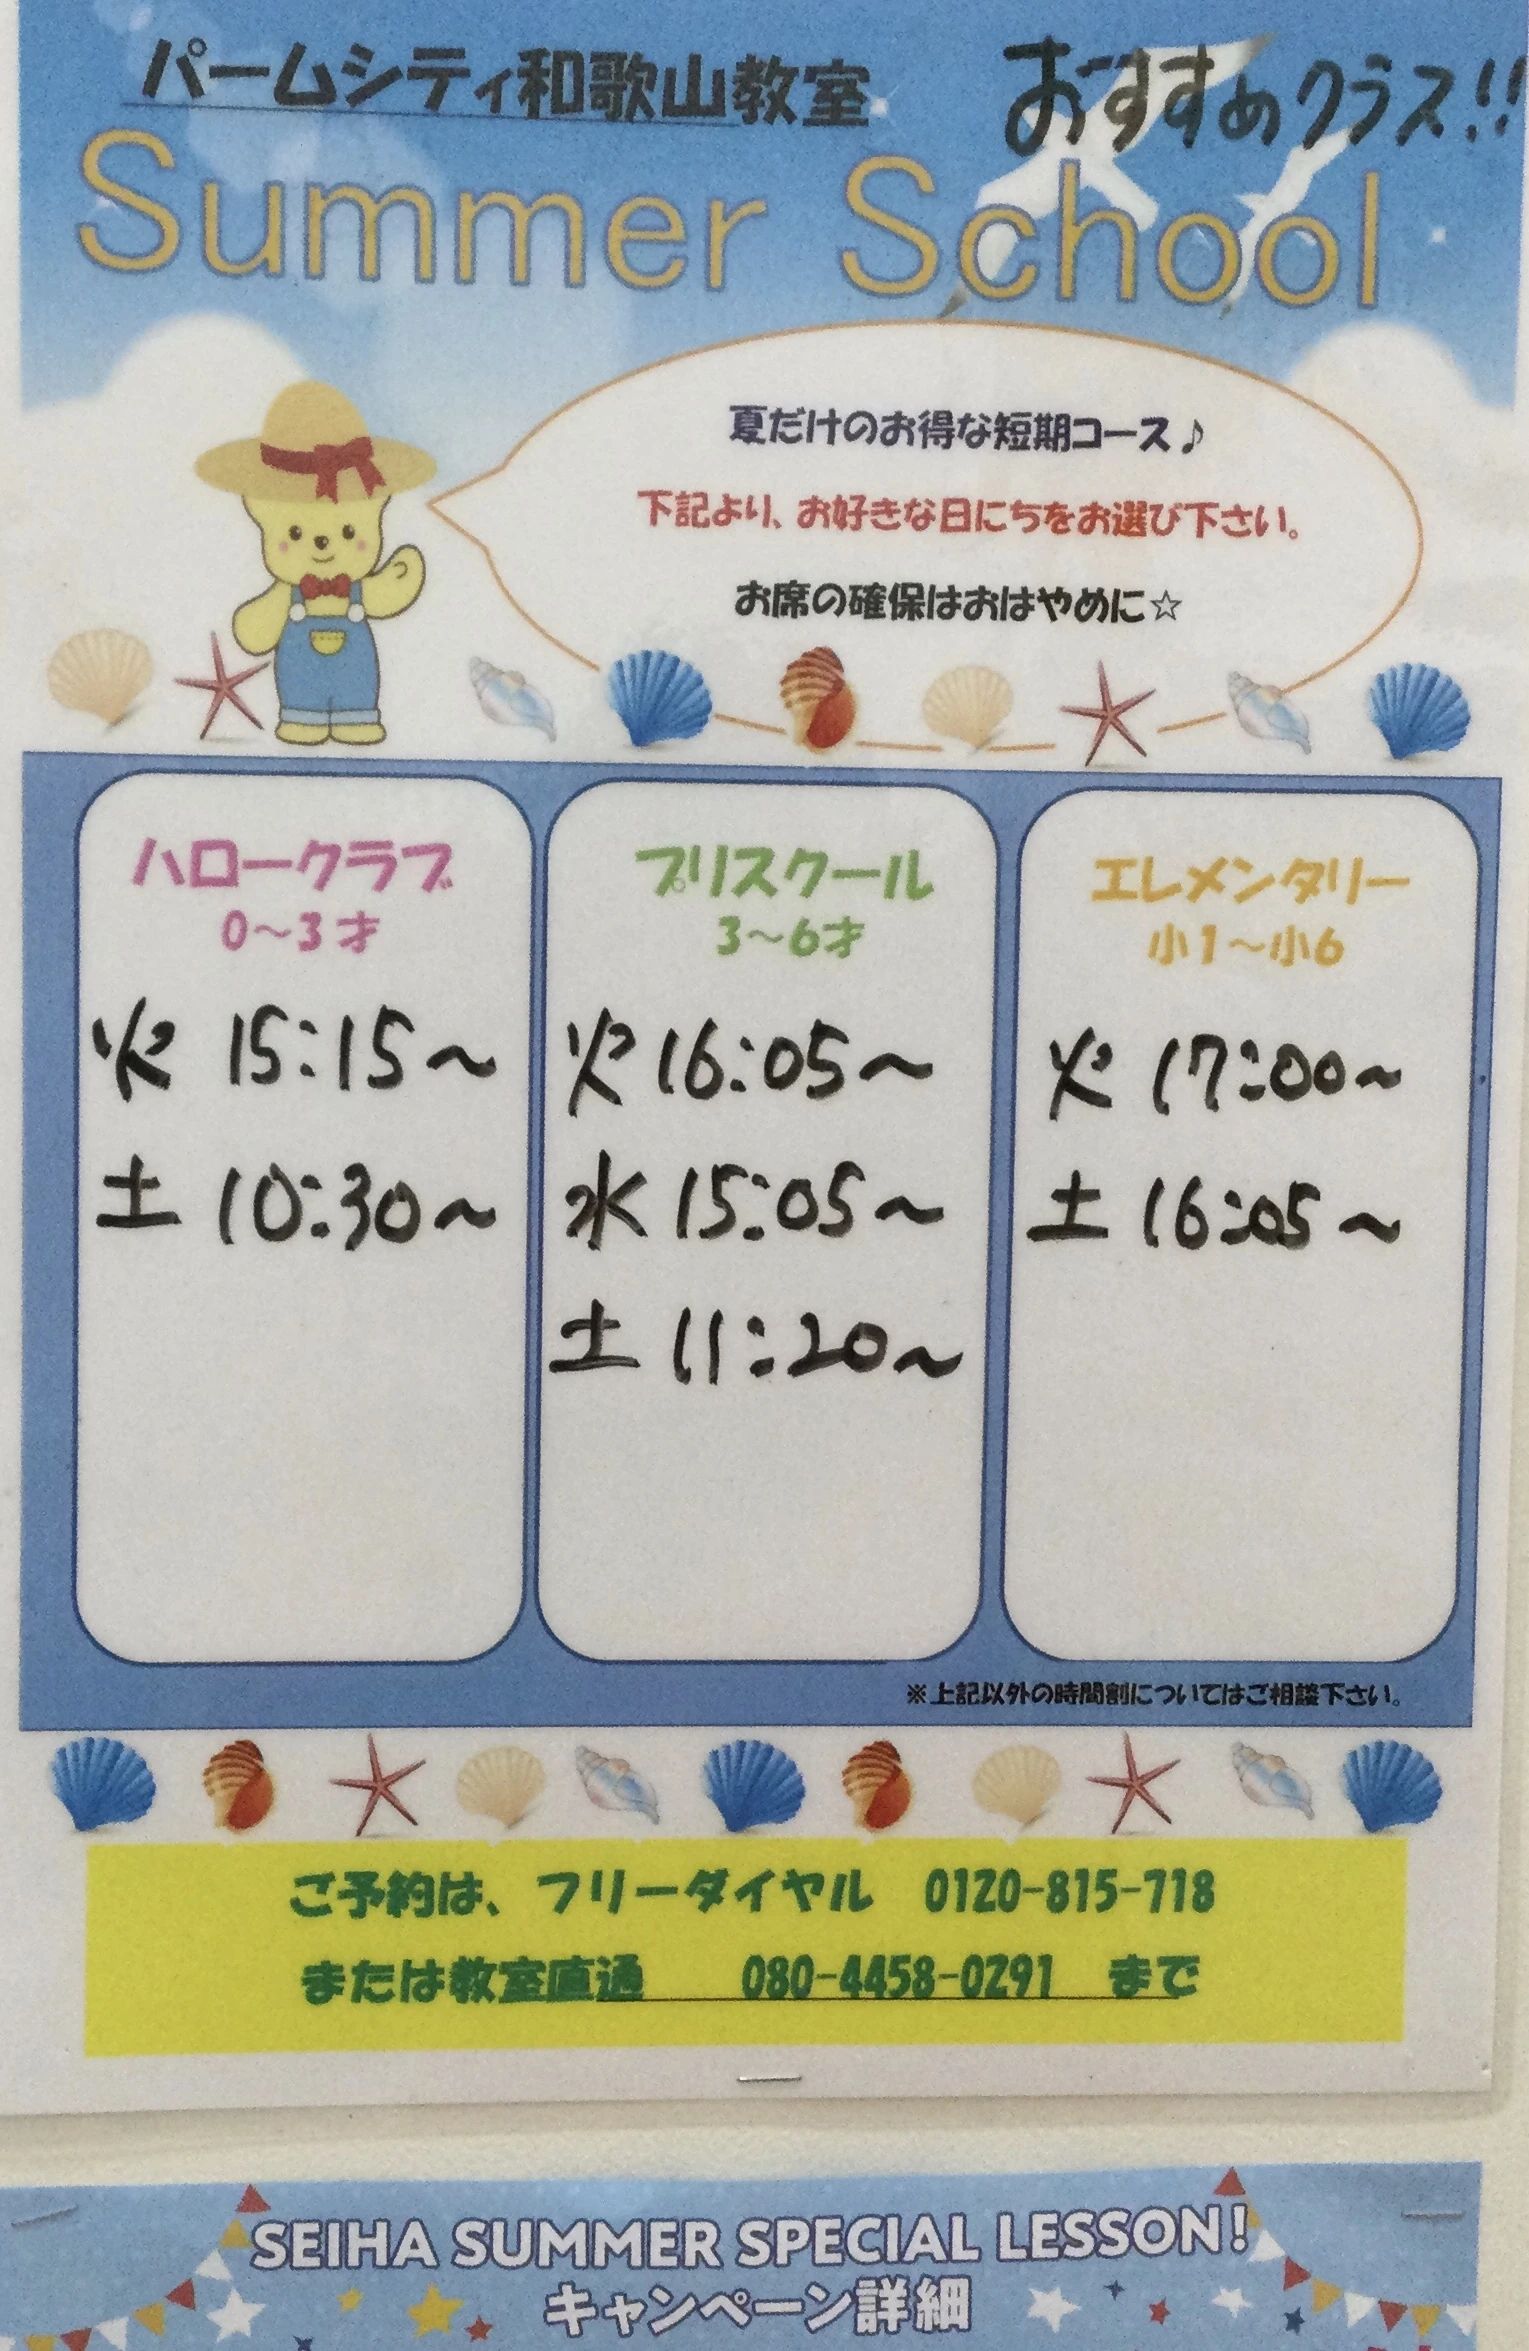 パームシティ和歌山教室
おすすめクラス!!
Summer School
夏だけのお得な短期コース♪
下記より、お好きな日にちをお選び下さい。
お席の確保はおはやめに☆
ハロークラブ
0～3才
火 15:15～
土 10:30～
プリスクール
3～6才
火 16:05～
水 15:05～
土 11:20～
エレメンタリー
小1～小6
火 17:00～
土 16:05～
※上記以外の時間割についてはご相談下さい。
ご予約は、フリーダイヤル 0120-815-718
または教室直通 080-4458-0291 まで
SEIHA SUMMER SPECIAL LESSON!
キャンペーン詳細